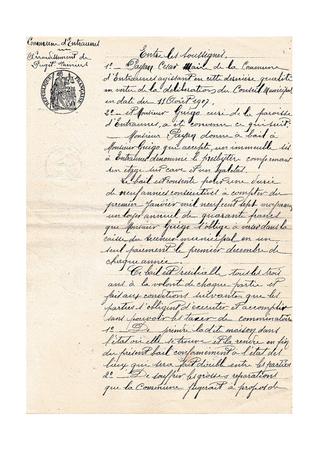 Commune d'Entraunes
Arrondissement de
Puget-Théniers
Entre les soussignés,
1º - Payan César Maire de la Commune
d'Entraunes agissant en cette dernière qualité
en vertu de la délibération du Conseil Municipal
en date du 11 Août 1907.
2º - et Monsieur Guigo curé de la paroisse
d'Entraunes, a été convenu ce qui suit.
Monsieur Payan donne à bail à
Monsieur Guigo qui accepte, un immeuble sis
à Entraunes dénommé le presbytère comprenant
un étage sur cave et un galetas.
Ce bail est consenti pour une durée
de neuf années consécutives à compter du
premier janvier mil neuf cent sept moyennant
un loyer annuel de quarante francs
que Monsieur Guigo s'oblige à verser dans la
caisse du receveur municipal en un
seul paiement le premier décembre de
chaque année.
Ce bail est résiliable tous les trois
ans à la volonté de chaque partie et
fait aux conditions suivantes que les
parties s'obligent d'exécuter et accomplir
sans pouvoir les taxer de comminatoire
1º - De prendre la dite maison dans
l'état où elle se trouve et la rendre en fin
du présent bail conformément à l'état des
lieux que sera fait double entre les parties
2º - De souffrir les grosses réparations
que la Commune jugerait à propos de